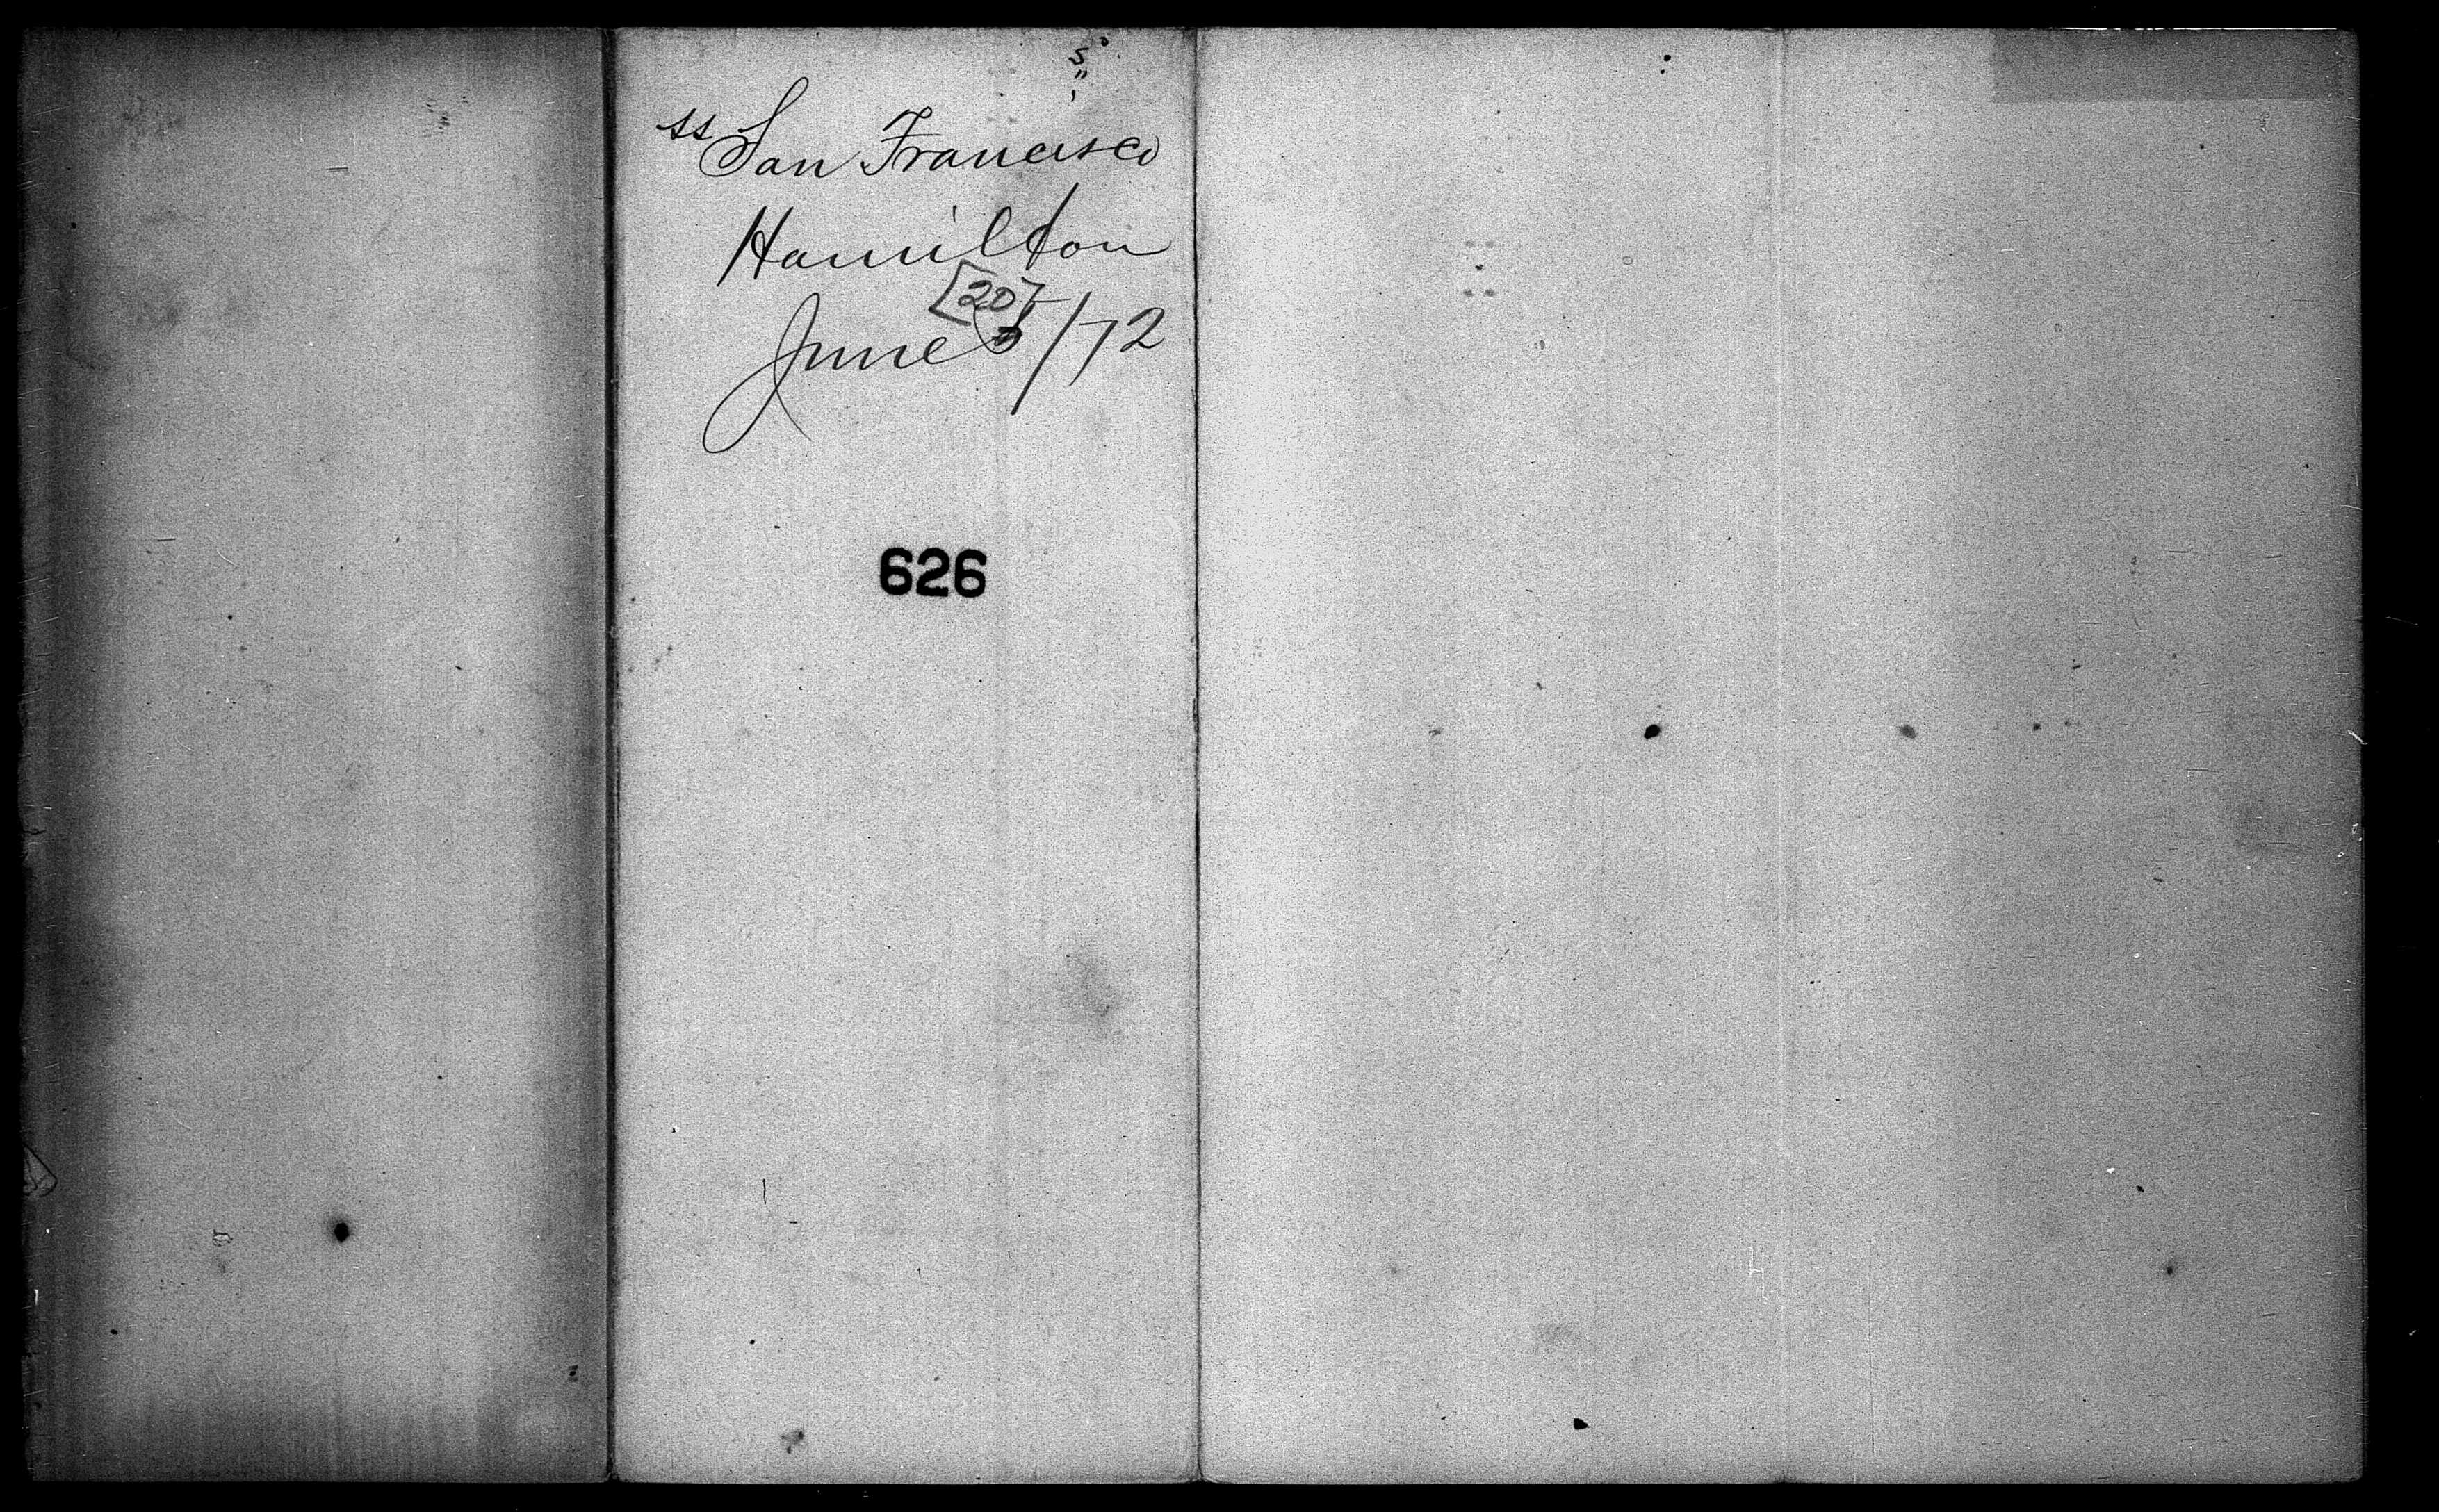 ss San Francisco
Hamilton
[20]
June 5/72
626